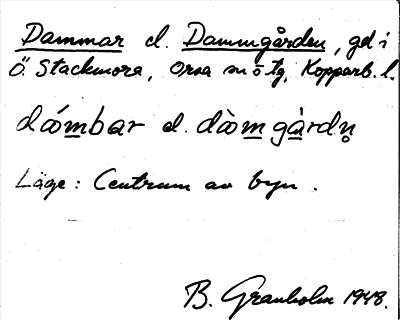 Dammar el. Dammgården, gd i
Ö. Stackmora, Orsa sn o tg, Kopparb. l.
dámbar el. dàmgàrdn̥
Läge: Centrum av byn.
B. Granholm 1948.